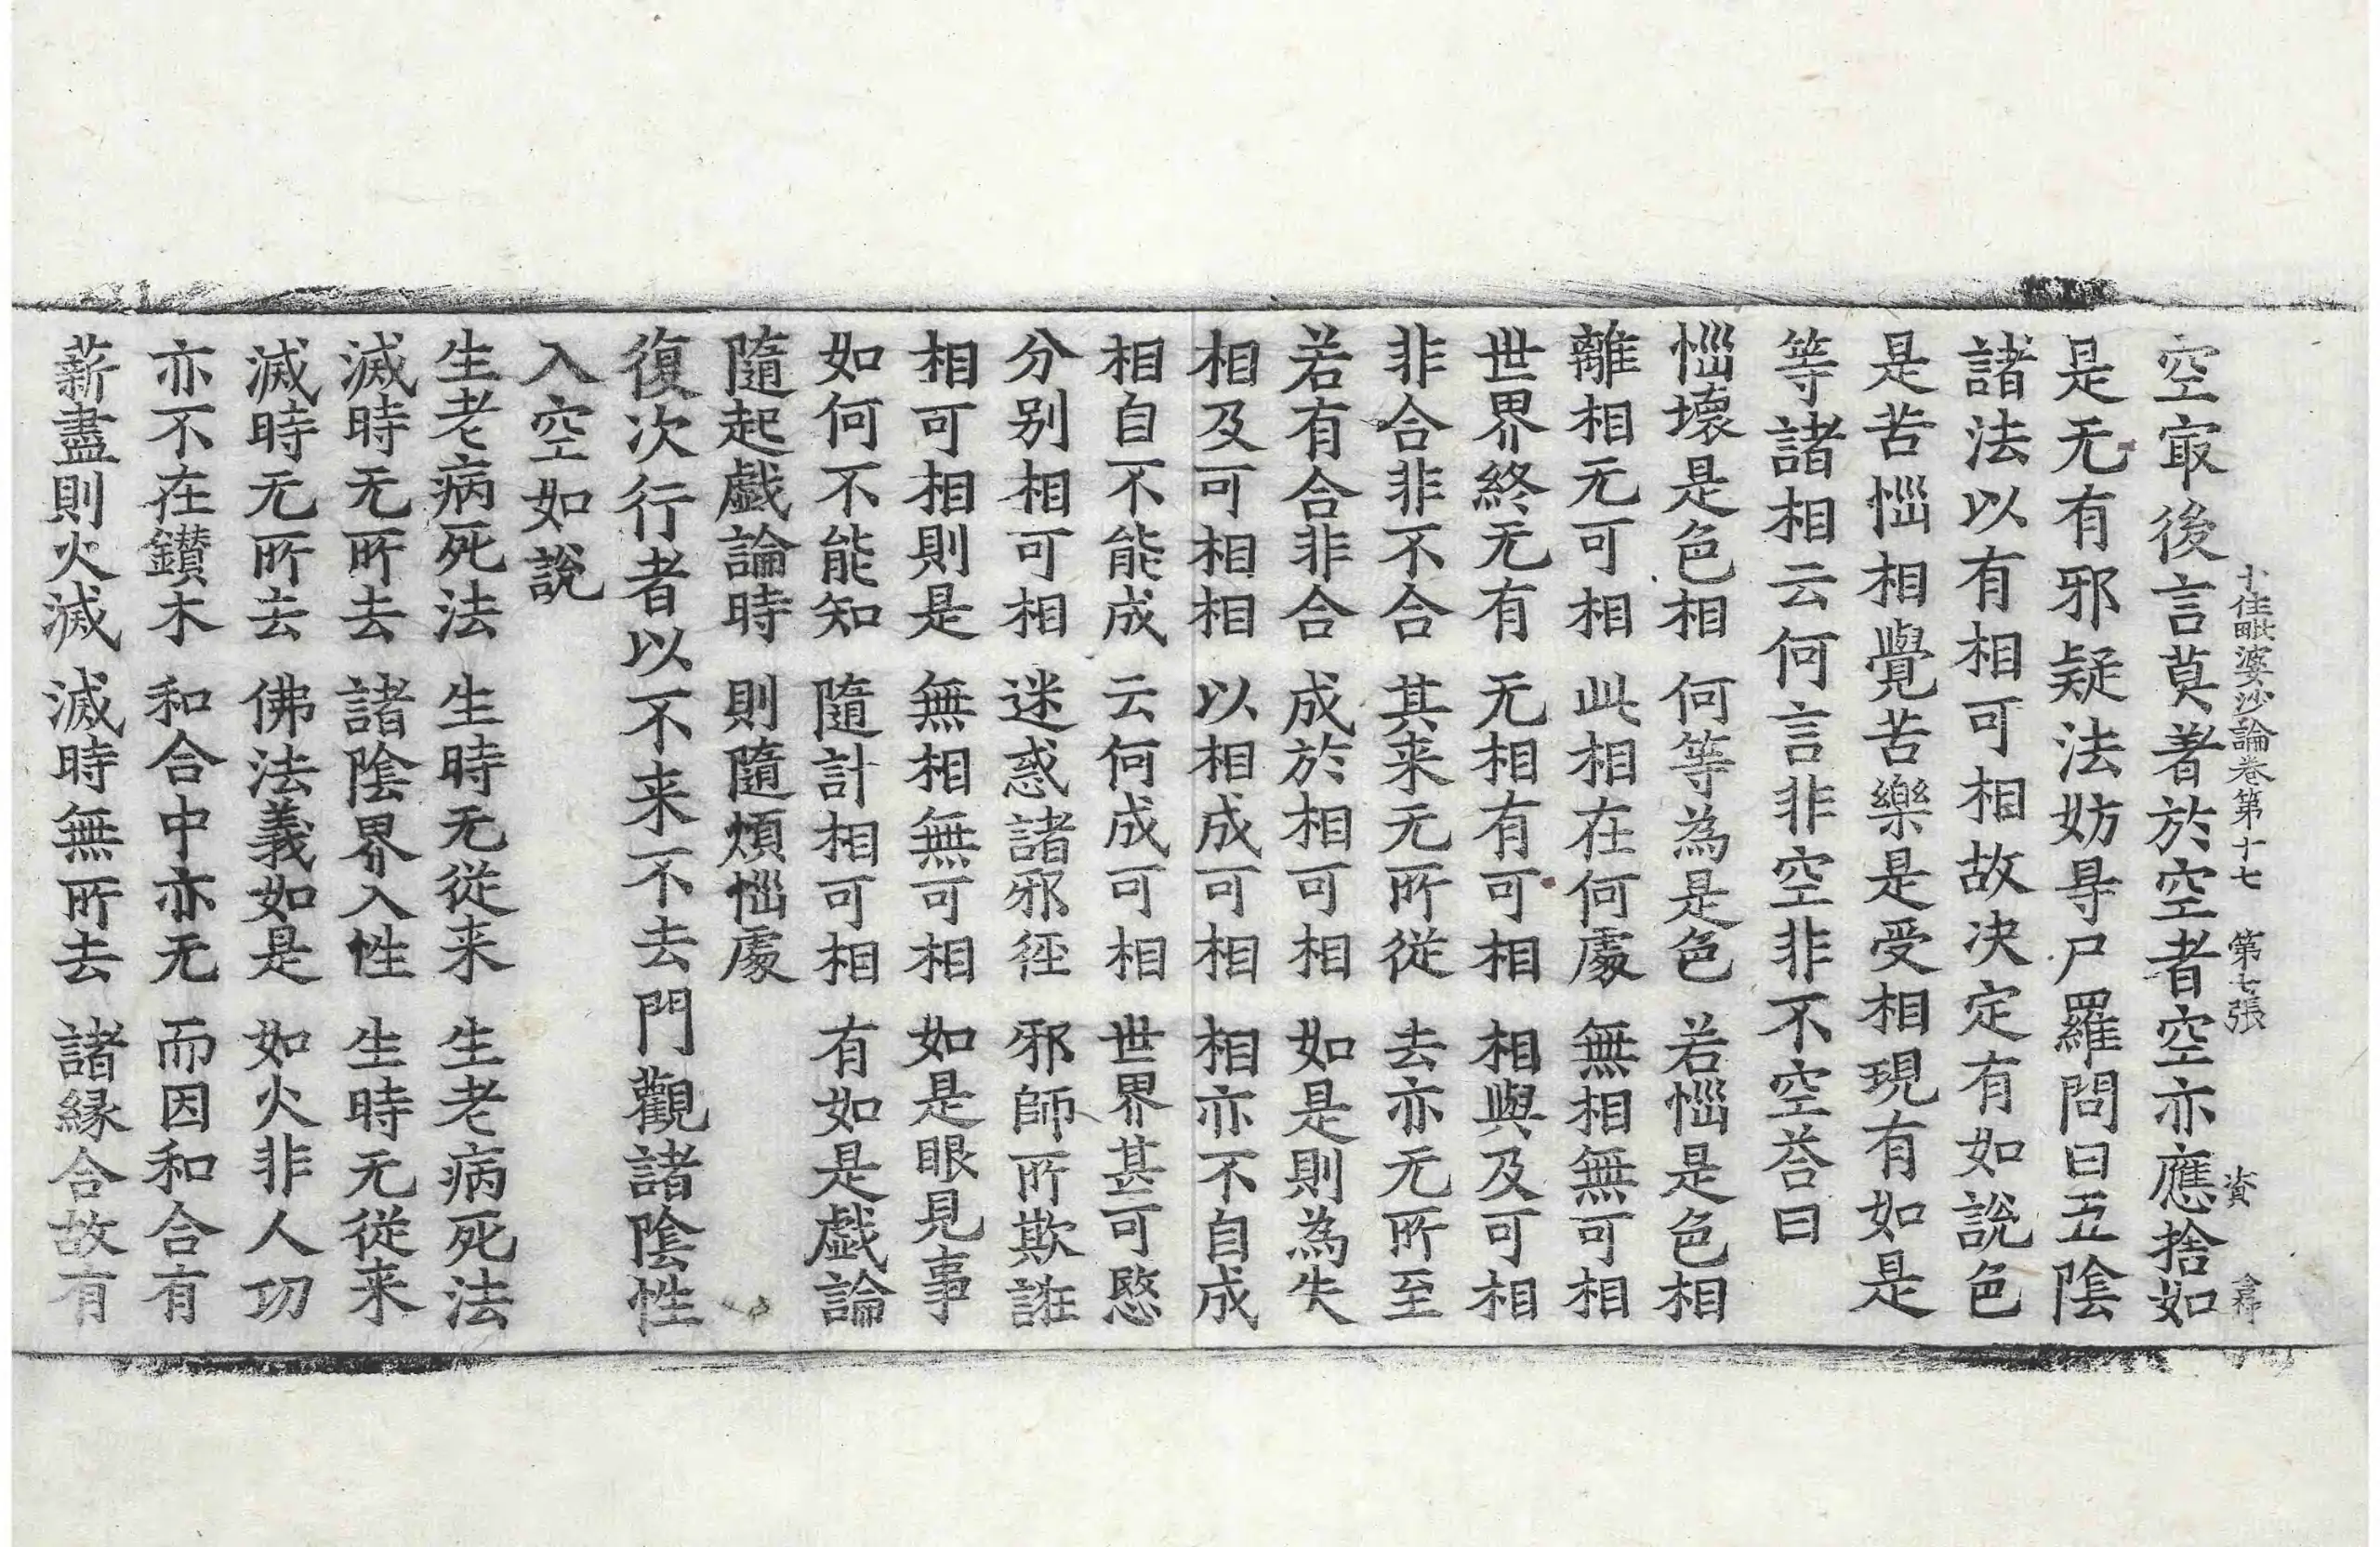 十住毗婆沙論卷第十七　第七張　資
空㝡後言莫著於空者空亦應捨如
是无有邪疑法妨㝵尸羅問曰五陰
諸法以有相可相故决定有如說色
是苦惱相覺苦樂是受相現有如是
等諸相云何言非空非不空荅曰
惱壞是色相　何等為是色　若惱是色相
離相无可相　此相在何處　無相無可相
世界終无有　无相有可相　相與及可相
非合非不合　其来无所從　去亦无所至
若有合非合　成於相可相　如是則為失
相及可相相　以相成可相　相亦不自成
相自不能成　云何成可相　世界甚可愍
分別相可相　迷惑諸邪徑　邪師所欺誑
相可相則是　無相無可相　如是眼見事
如何不能知　隨計相可相　有如是戱論
隨起戱論時　則隨煩惱處
復次行者以不来不去門觀諸陰性
入空如說
生老病死法　生時无從来　生老病死法
滅時无所去　諸陰界入性　生時无從来
滅時无所去　佛法義如是　如火非人功
亦不在鑚木　和合中亦无　而因和合有
薪盡則火滅　滅時無所去　諸縁合故有